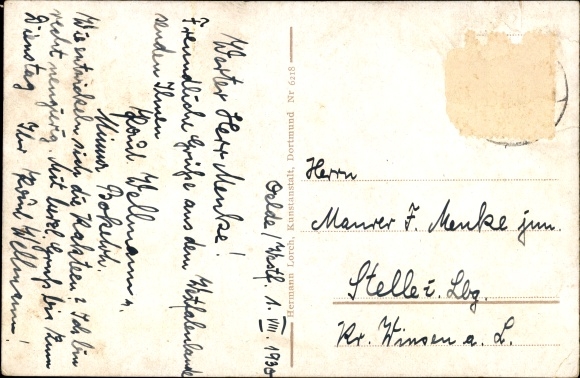 Oelde / Westf. 1. VIII. 1930
Werter Herr Menke!
Freundliche Grüße aus dem Westfalenlande
senden Ihnen
Köni Wellmann u.
Minna
Wie entwickeln sich die Kakteen? Ich bin
recht neugierig. Mit herzl. Gruß bis zum
Dienstag Ihr Köni Wellmann!
Hermann Lorch, Kunstanstalt, Dortmund Nr 6218
Herrn
Maurer F. Menke jun.
Stelle i. Lbg.
Kr. Winsen a. L.